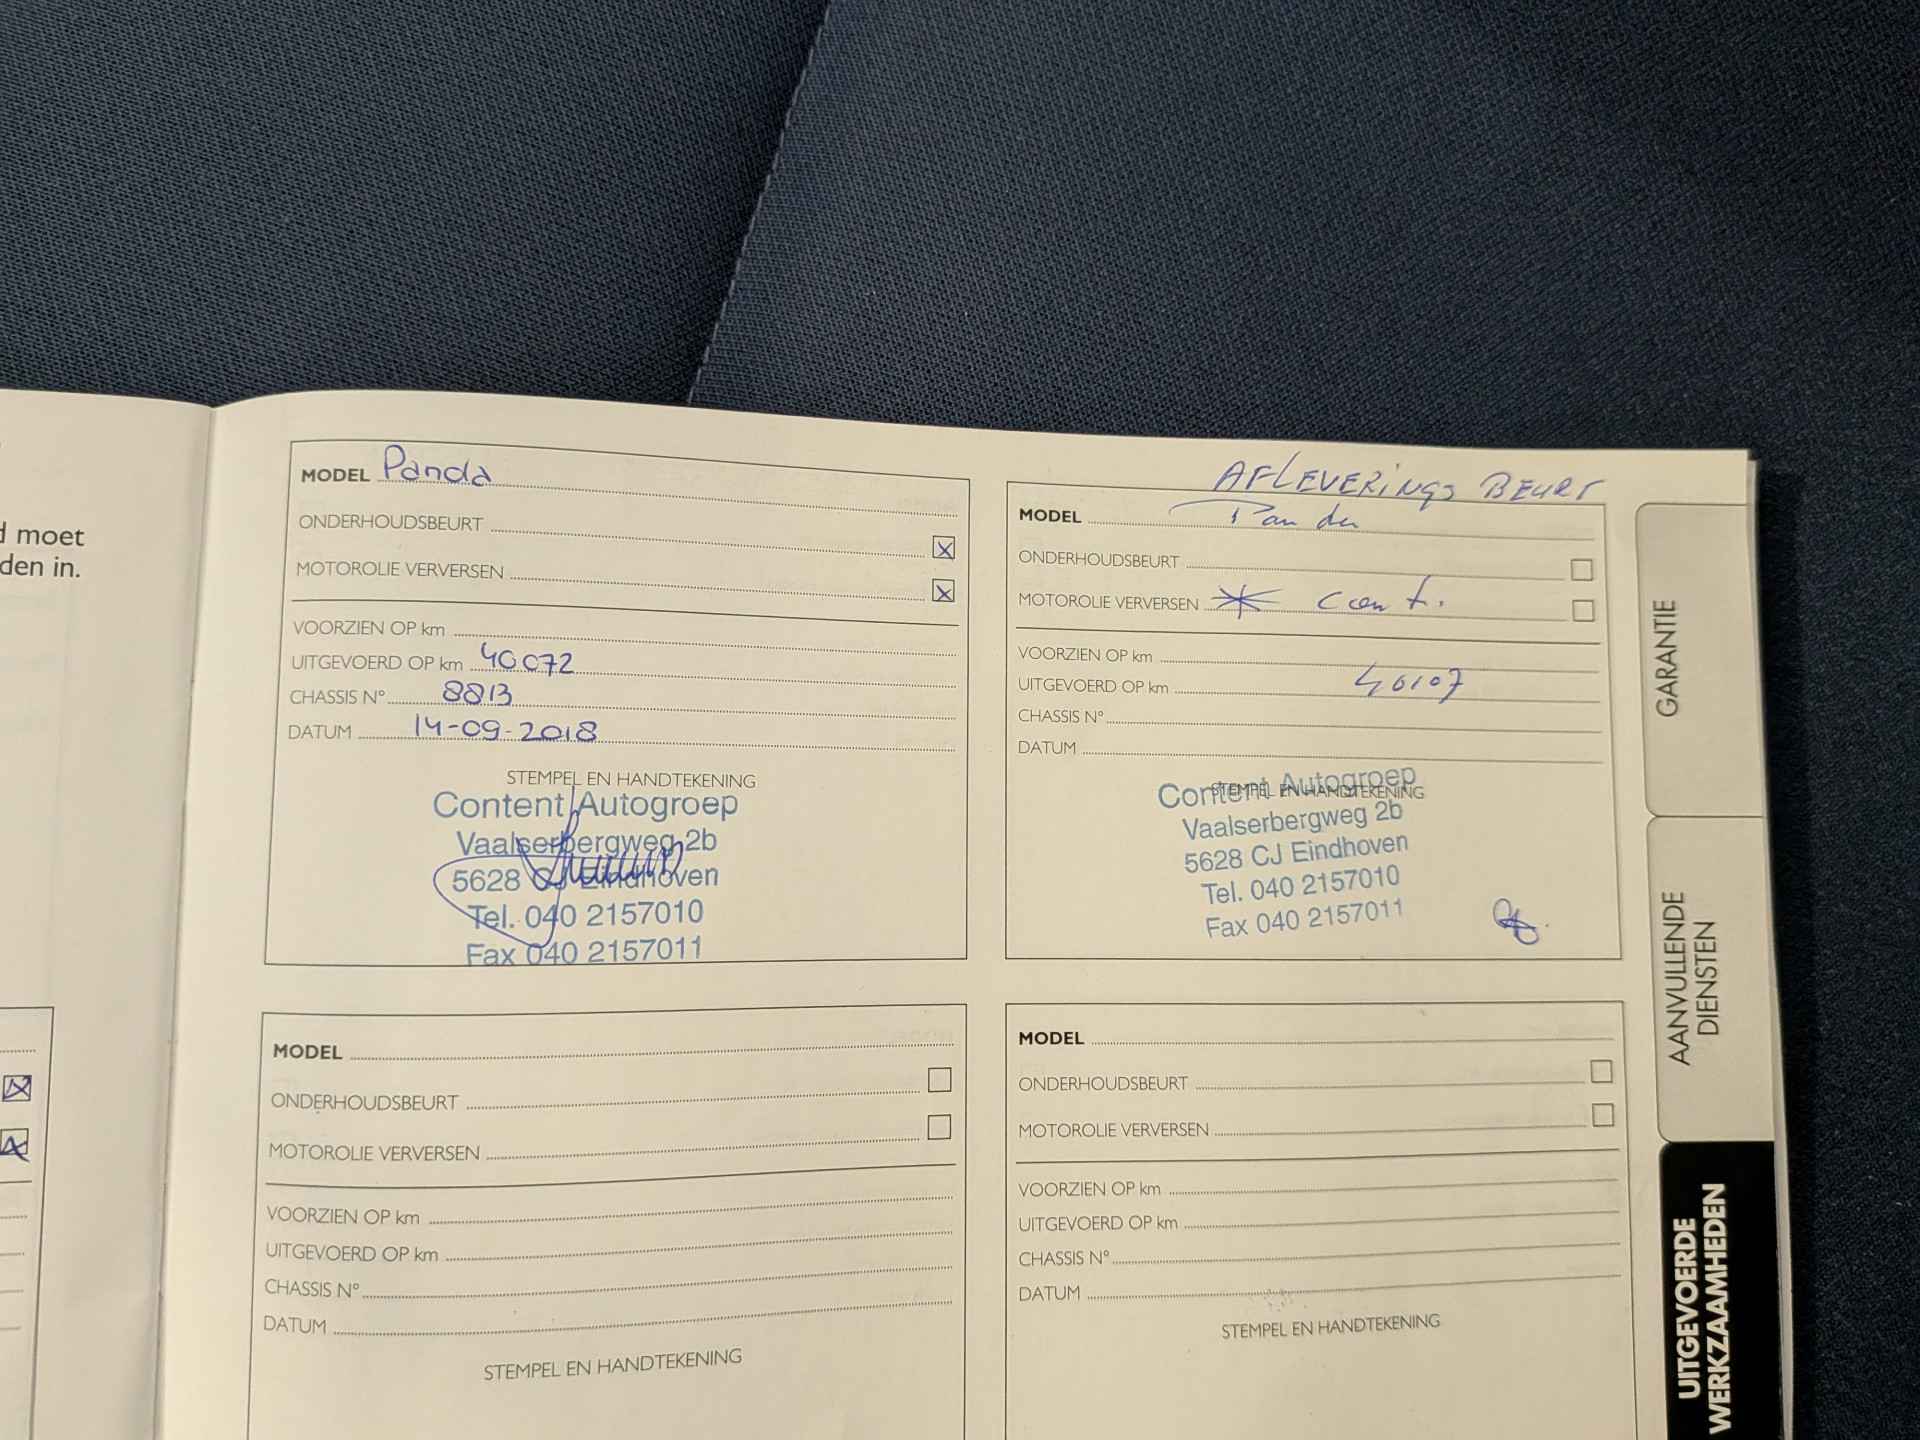 d moet
den in.
MODEL Panda
ONDERHOUDSBEURT
MOTOROLIE VERVERSEN
VOORZIEN OP km
UITGEVOERD OP km 40072
CHASSIS N° 8813
DATUM 14-09-2018
STEMPEL EN HANDTEKENING
Content Autogroep
Vaalserbergweg 2b
5628 CJ Eindhoven
Tel. 040 2157010
Fax 040 2157011
AFLEVERINGS BEURT
MODEL Panda
ONDERHOUDSBEURT
MOTOROLIE VERVERSEN
VOORZIEN OP km
UITGEVOERD OP km 40107
CHASSIS N°
DATUM
STEMPEL EN HANDTEKENING
Content Autogroep
Vaalserbergweg 2b
5628 CJ Eindhoven
Tel. 040 2157010
Fax 040 2157011
MODEL
ONDERHOUDSBEURT
MOTOROLIE VERVERSEN
VOORZIEN OP km
UITGEVOERD OP km
CHASSIS N°
DATUM
STEMPEL EN HANDTEKENING
MODEL
ONDERHOUDSBEURT
MOTOROLIE VERVERSEN
VOORZIEN OP km
UITGEVOERD OP km
CHASSIS N°
DATUM
STEMPEL EN HANDTEKENING
GARANTIE
AANVULLENDE
DIENSTEN
UITGEVOERDE
WERKZAAMHEDEN